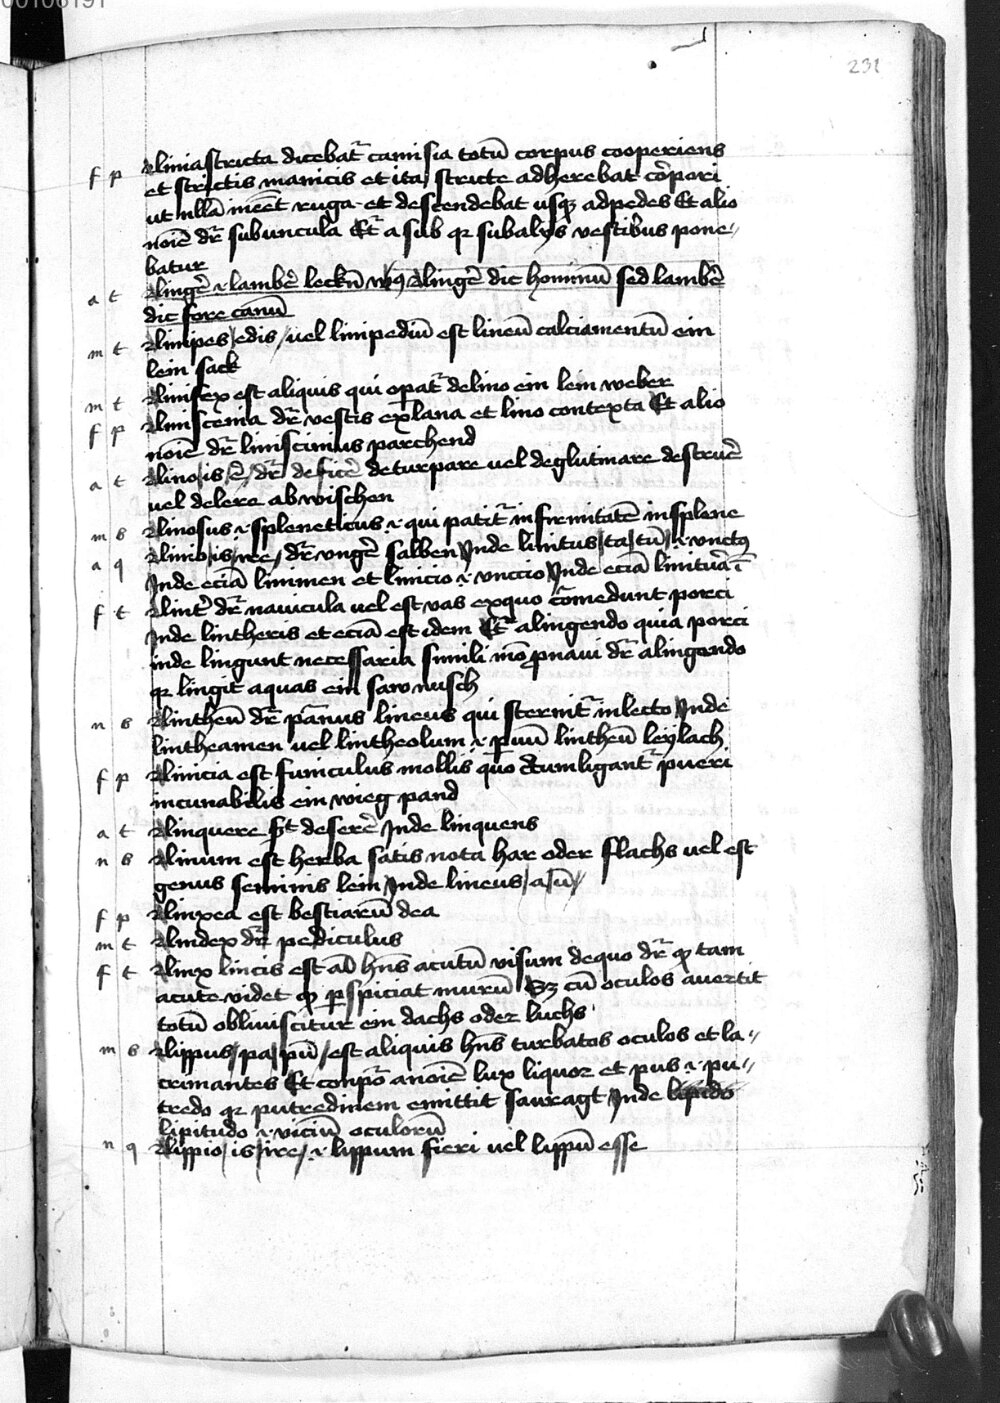 00106191
231
f p Liniastricta dicebat᷑ camisia totū corpus cooperiens
et strictis manicis et ita stricte adherebat corpori
ut nllā ineēt ruga et descendebat usqꝫ adpedes Et alio
noīe dr̄ subuncula Et᷑ a sub qꝛ subalijs vestibus pone〃
batur
a t Lingē ⁊ lambē leckn̄ lingē dic hominū sed lambē
dic fore canū
m t Linipes / edis / uel linipediū est lineū calciamentū ein
lein sack
m t Linifex est aliquis qui opat᷑ delino ein lein weber
f p Liniscema dr̄ vestis exlana et lino contexta Et alio
noīe dr̄ liniscimus parchend
a t Lino / is / ē / dr̄ deficē deturpare uel deglutinare destruē
uel delere abwischen
m b Linosus ⁊ spleneticus ⁊ qui patit᷑ infirmitatē insplene
a q Linio / is / ire / dr̄ vngē salben Inde linitus / ta / tū / ⁊ vnctꝯ
Inde eciā linimen et linicio ⁊ vnccio Inde eciā linitura
f t Lint᷑ dr̄ nauicula uel est vas exquo comedunt porci
Inde lintheris et eciā est idem Et᷑ alingendo quia porci
inde lingunt necessaria simili mō pnaui dr̄ alingendo
qꝛ lingit aquas ein saw nusch
n b Lintheū dr̄ pannus lineus qui sternit᷑ inlecto Inde
lintheamen uel lintheolum ⁊ puū lintheū leylach
f p Linicia est funiculus mollis quo cumligant᷑ pueri
incunabilis ein wieg pand
a t Linquere st deserē Inde linquens
n b Linum est herba satis nota har oder flachs uel est
genus seminis lein Inde lineus / a / ū /
f p Linxea est bestiarū dea
m t Lindex dr̄ pediculus
f t Linx lincis est aīal hn̄s acutū visum dequo dr̄ qꝫ tam
acute videt qꝫ pspiciat murū Sꝫ cū oculos auertit
totū obliuiscitur ein dachs oder luchs
m b Lippus / pa / pū / est aliquis hn̄s turbatos oculos et la〃
crimantes Et conpo anoīe lux liquor et pus ⁊ pu〃
tredo qꝛ putredinem emittit sauragt Inde
lipitudo ⁊ viciū oculorū
n q Lippio / is / ire / ⁊ lippum fieri uel lippū esse